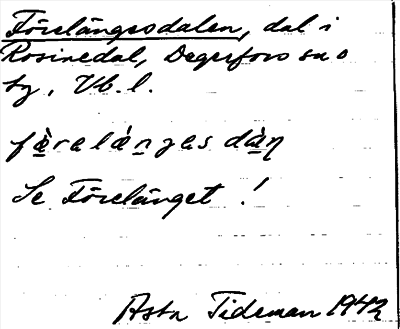 Förelängesdalen, dal i
Rosinedal, Degerfors sn o
by, Vb. l.
fø̀relængəs dàn
Se Förelänget!
Asta Tideman 1942